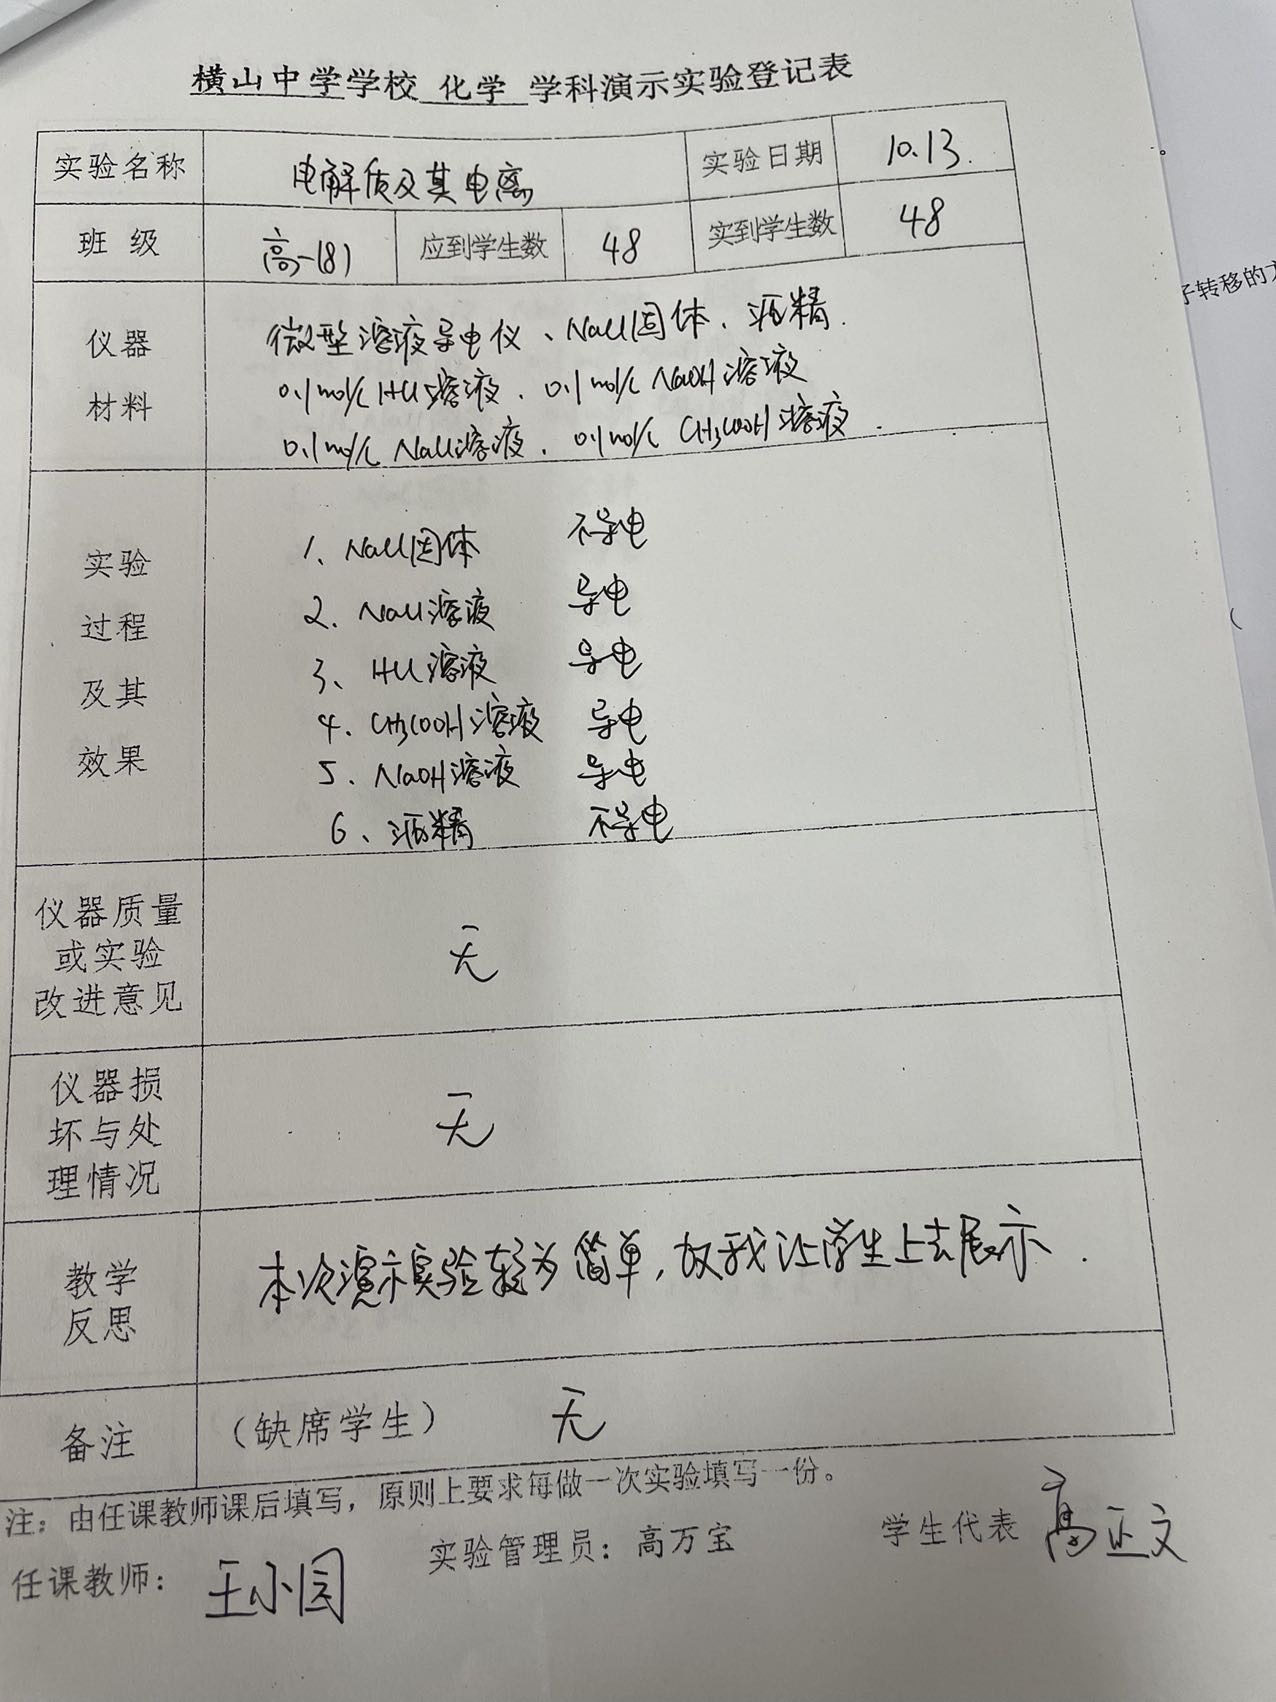 横山中学学校 化学 学科演示实验登记表
实验名称 电解质及其电离 实验日期 10.13.
班 级 高一(8) 应到学生数 48 实到学生数 48
仪器 微型溶液导电仪、NaCl固体、酒精.
0.1mol/L HCl溶液、0.1mol/L NaOH溶液
材料
0.1mol/L NaCl溶液、0.1mol/L CH3COOH溶液.
实验
过程
及其
效果
1、NaCl固体 不导电
2、NaCl溶液 导电
3、HCl溶液 导电
4、CH3COOH溶液 导电
5、NaOH溶液 导电
6、酒精 不导电
仪器质量
或实验
改进意见
无
仪器损
坏与处
理情况
无
教学
反思
本次演示实验较为简单,故我让学生上去展示.
备注 (缺席学生) 无
注:由任课教师课后填写,原则上要求每做一次实验填写一份。
任课教师: 王小园 实验管理员:高万宝 学生代表 高正文
子转移的